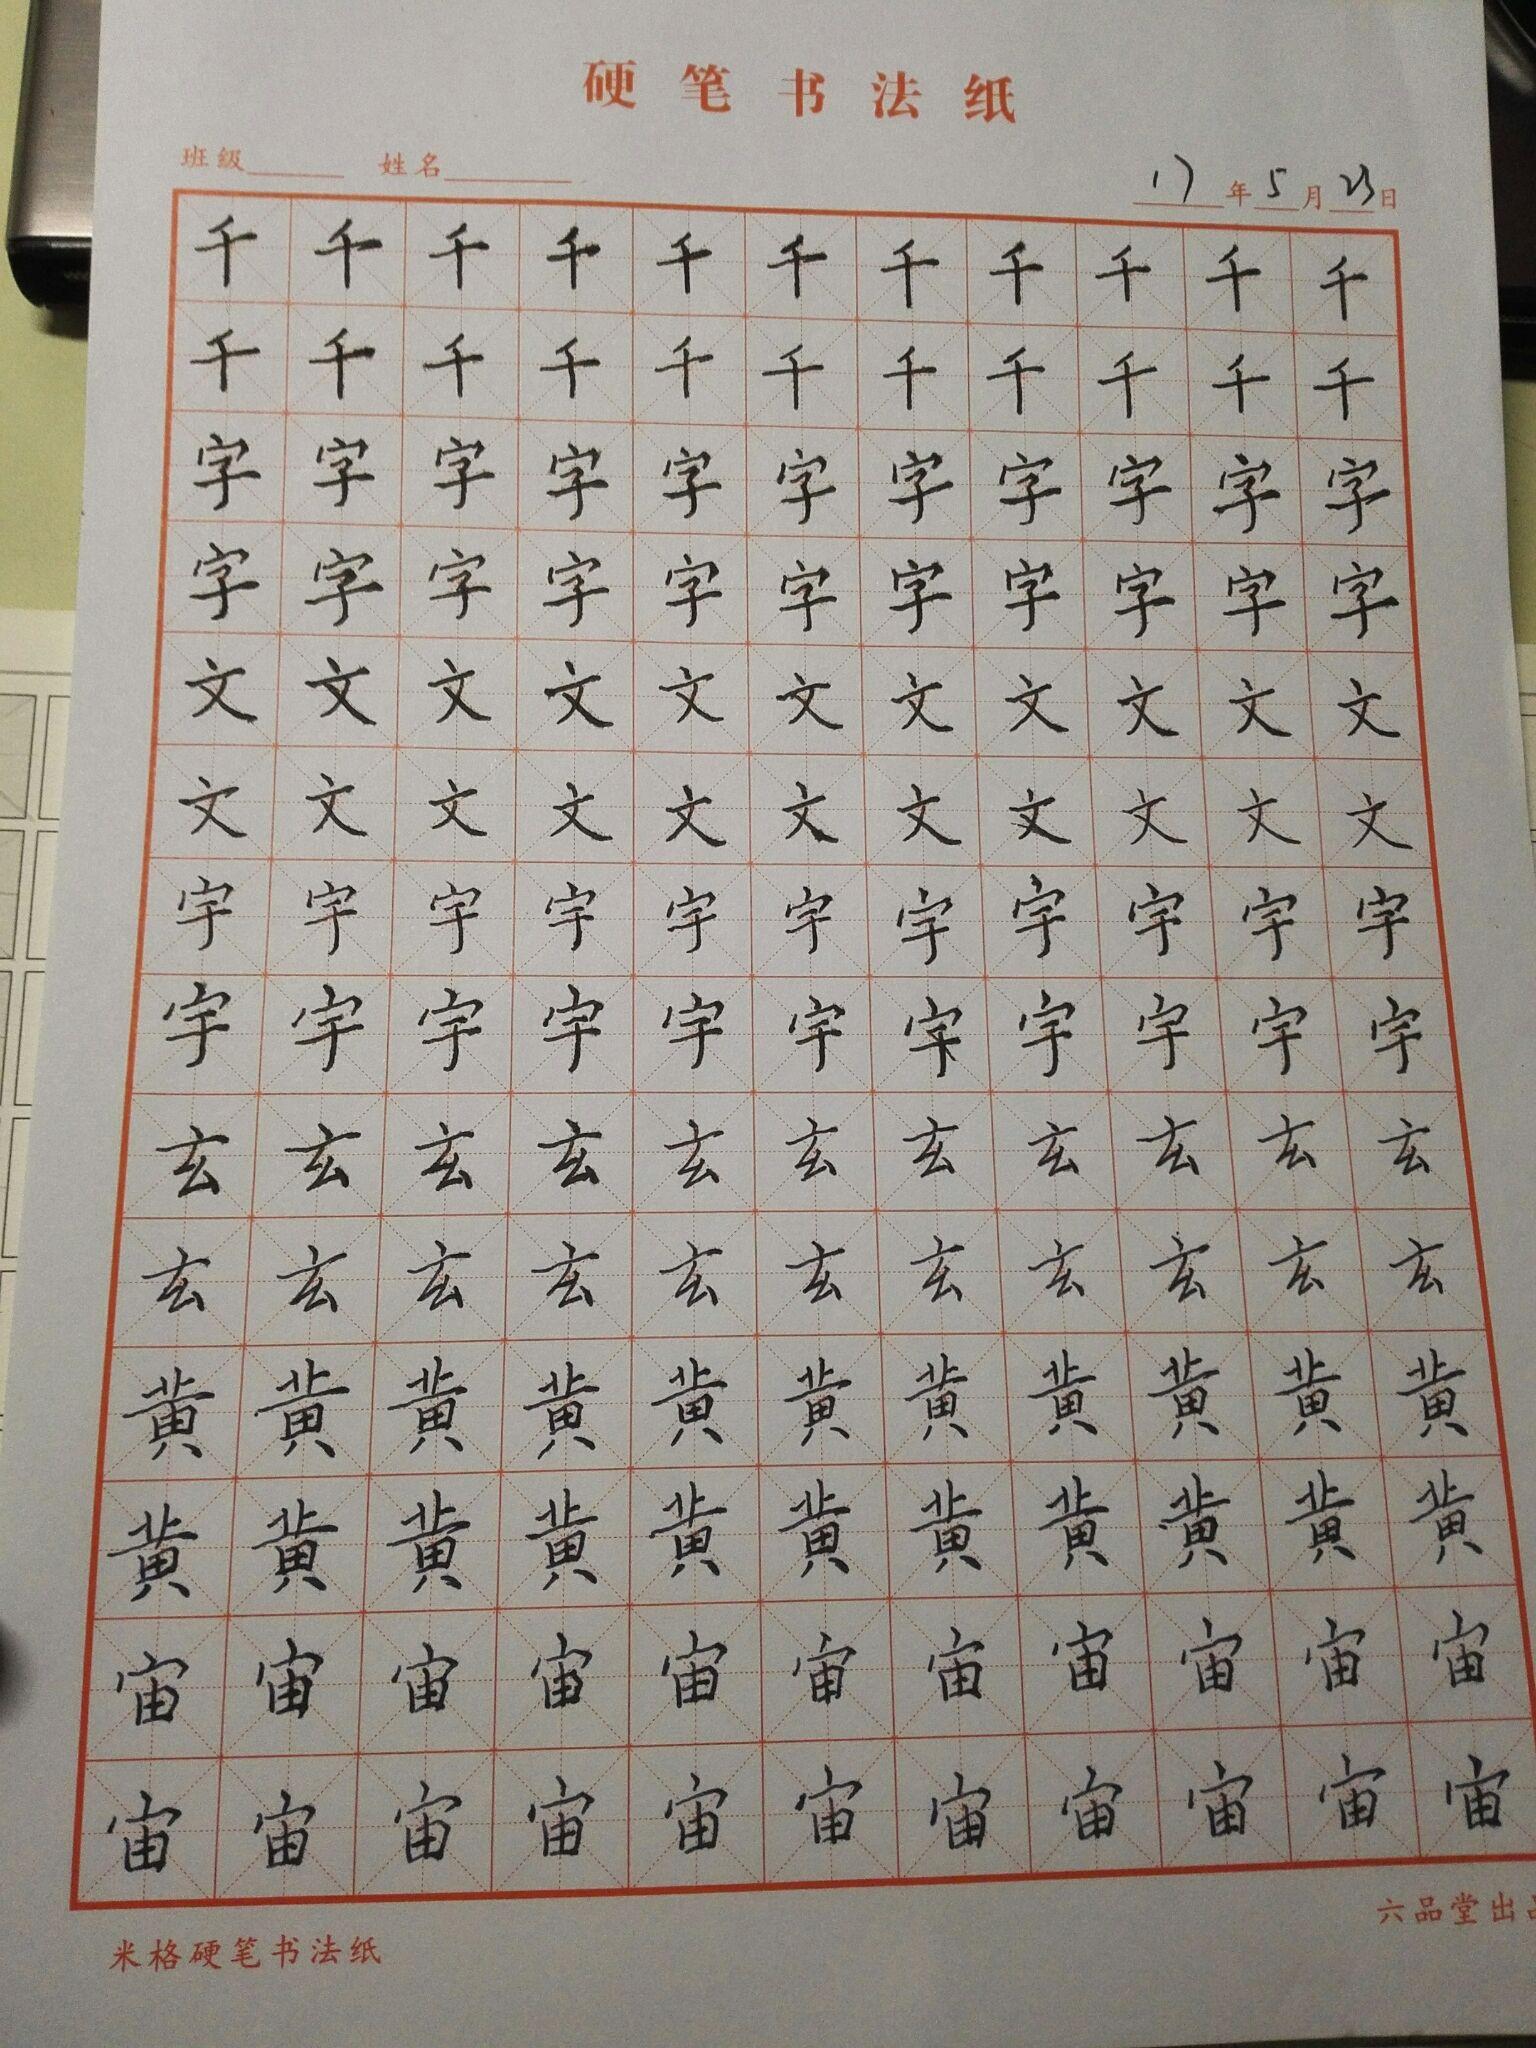 硬笔书法纸
班级 姓名 17年5月23日
千千千千千千千千千千千
千千千千千千千千千千千
字字字字字字字字字字字
字字字字字字字字字字字
文文文文文文文文文文文
文文文文文文文文文文文
宇宇宇宇宇宇宇宇宇宇宇
宇宇宇宇宇宇宇宇宇宇宇
玄玄玄玄玄玄玄玄玄玄玄
玄玄玄玄玄玄玄玄玄玄玄
黄黄黄黄黄黄黄黄黄黄黄
黄黄黄黄黄黄黄黄黄黄黄
宙宙宙宙宙宙宙宙宙宙宙
宙宙宙宙宙宙宙宙宙宙宙
米格硬笔书法纸
六品堂出品